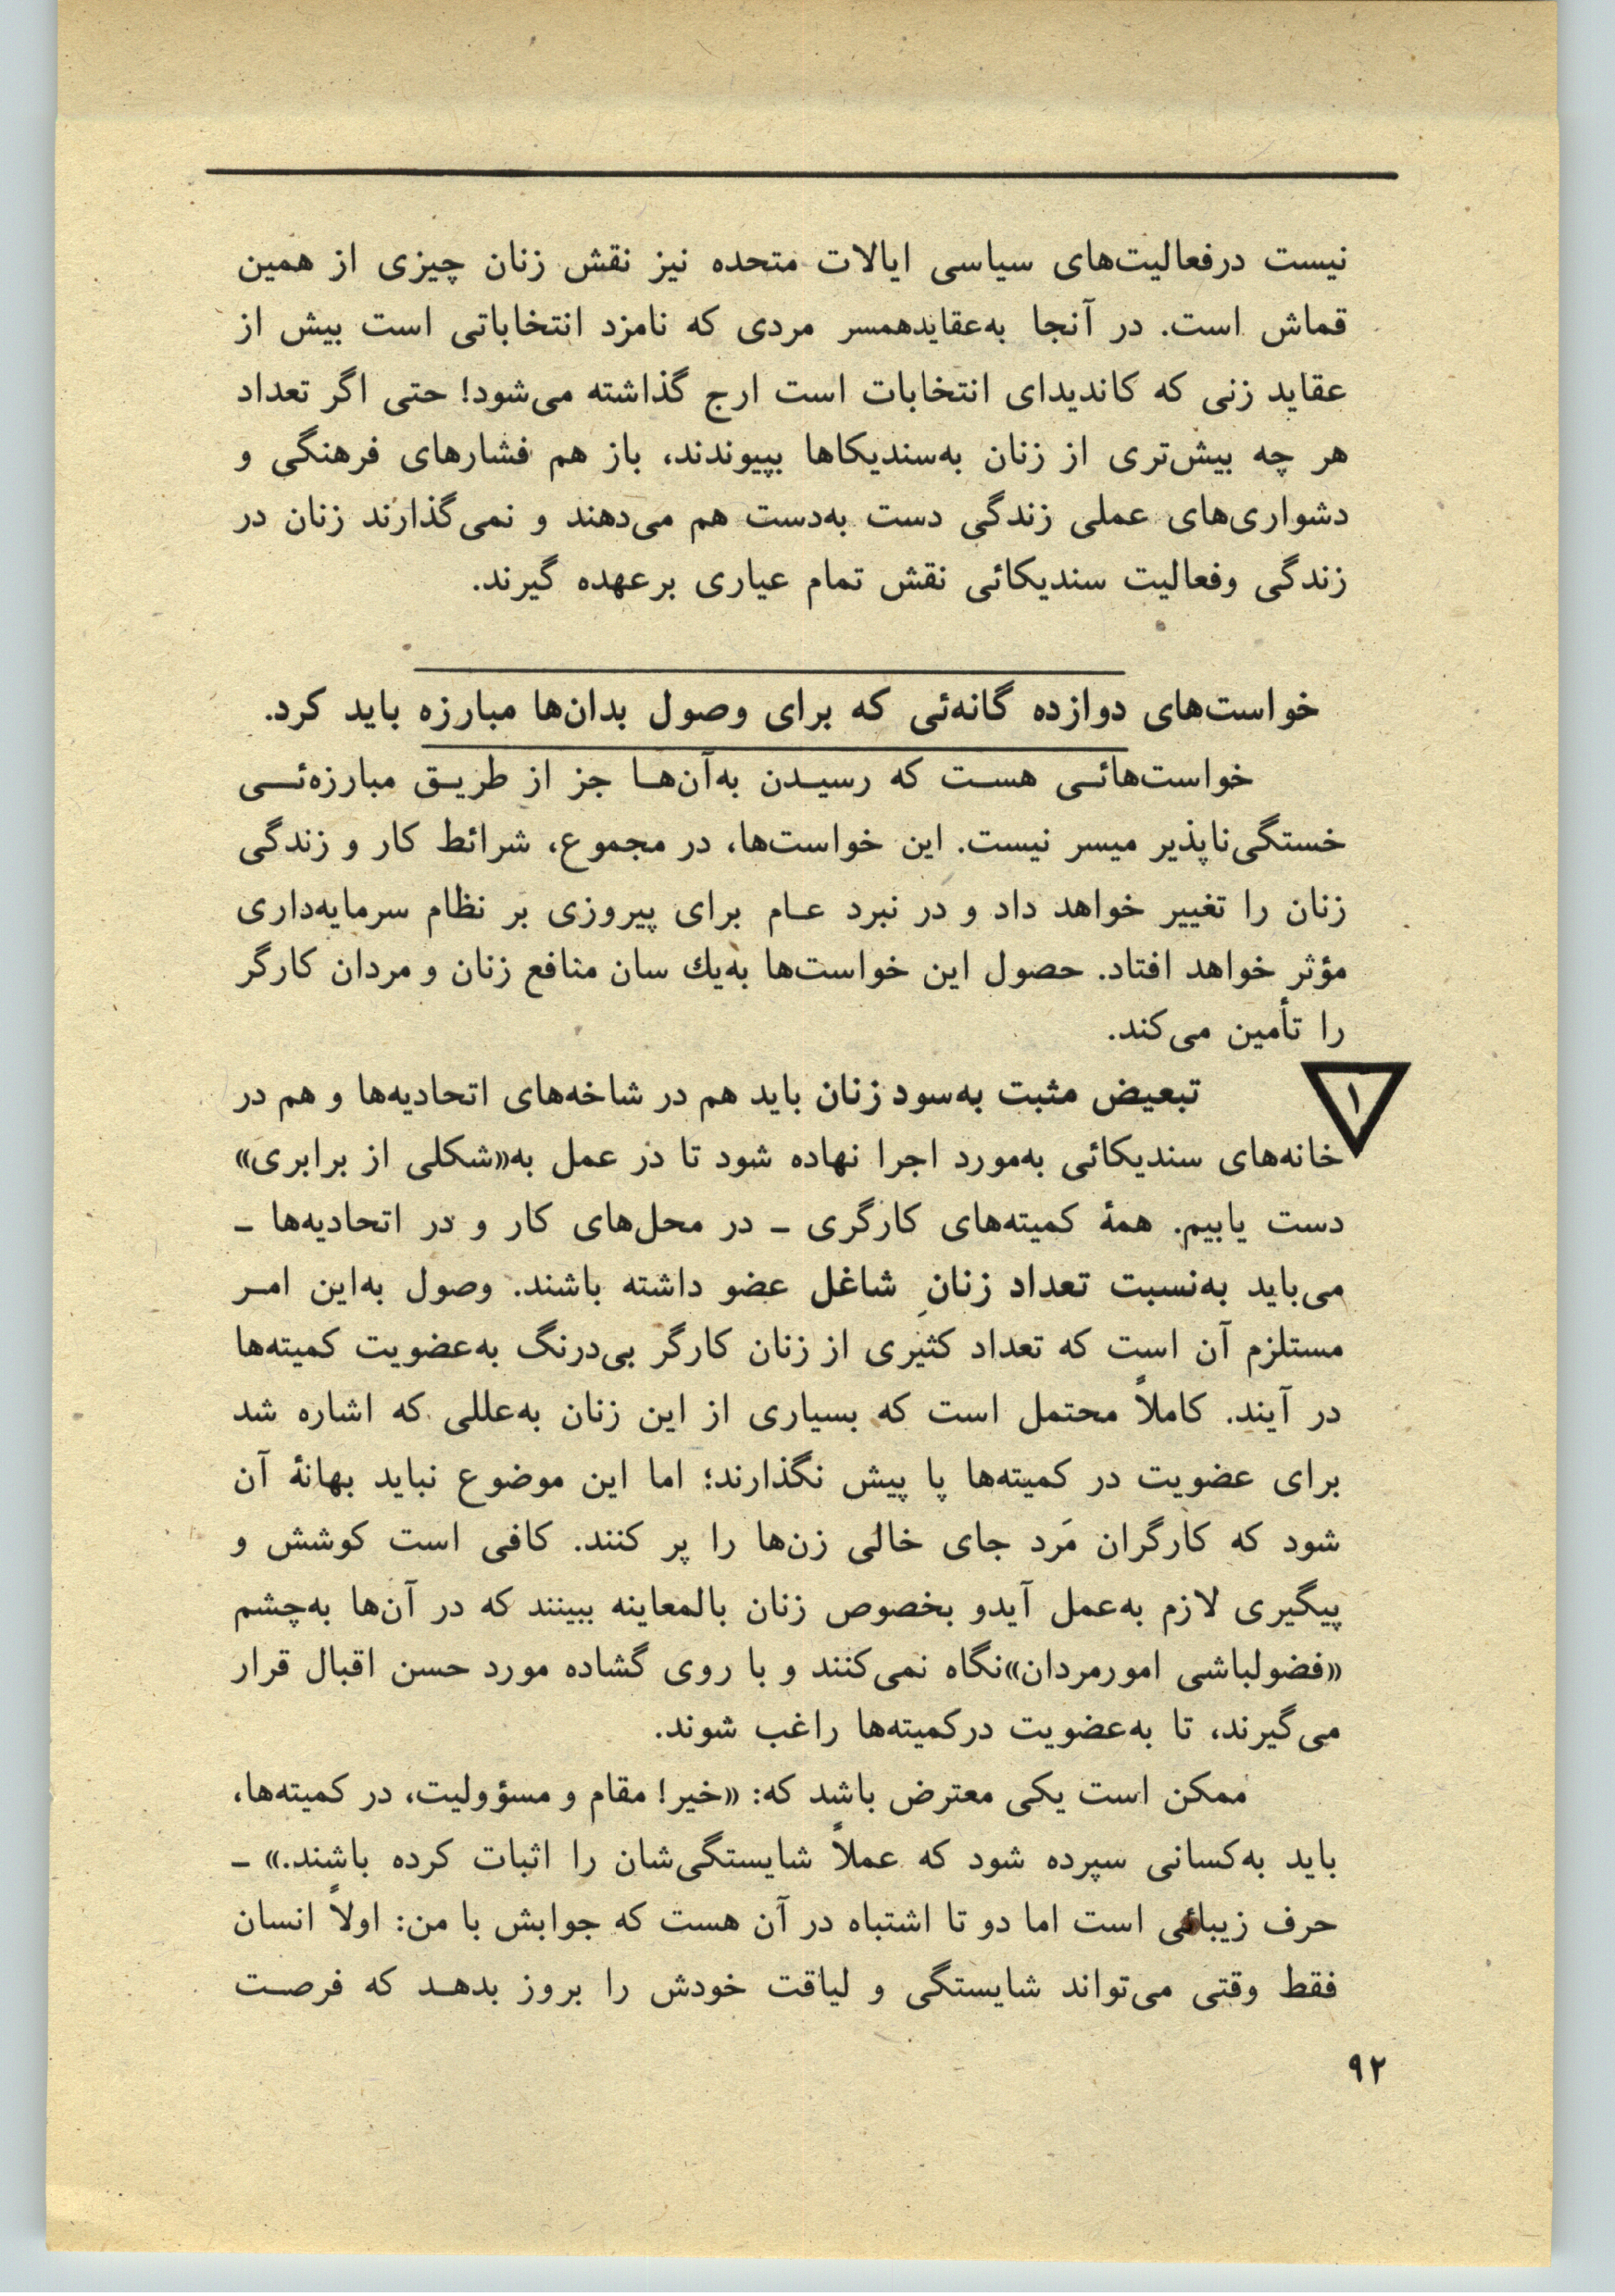 نیست درفعالیت‌های سیاسی ایالات متحده نیز نقش زنان چیزی از همین
قماش است. در آنجا به‌عقایدهمسر مردی که نامزد انتخاباتی است بیش از
عقاید زنی که کاندیدای انتخابات است ارج گذاشته می‌شود! حتی اگر تعداد
هر چه بیش‌تری از زنان به‌سندیکاها بپیوندند، باز هم فشارهای فرهنگی و
دشواری‌های عملی زندگی دست به‌دست هم می‌دهند و نمی‌گذارند زنان در
زندگی وفعالیت سندیکائی نقش تمام عیاری برعهده گیرند.
خواست‌های دوازده گانه‌ئی که برای وصول بدان‌ها مبارزه باید کرد.
خواست‌هائـی هسـت که رسیـدن به‌آن‌هـا جز از طریـق مبارزه‌ئـی
خستگی‌ناپذیر میسر نیست. این خواست‌ها، در مجموع، شرائط کار و زندگی
زنان را تغییر خواهد داد و در نبرد عـام برای پیروزی بر نظام سرمایه‌داری
مؤثر خواهد افتاد. حصول این خواست‌ها به‌یك سان منافع زنان و مردان کارگر
را تأمین می‌کند.
۱
تبعیض مثبت به‌سود زنان باید هم در شاخه‌های اتحادیه‌ها و هم در
خانه‌های سندیکائی به‌مورد اجرا نهاده شود تا در عمل به«شکلی از برابری»
دست یابیم. همهٔ کمیته‌های کارگری ـ در محل‌های کار و در اتحادیه‌ها ـ
می‌باید به‌نسبت تعداد زنانِ شاغل عضو داشته باشند. وصول به‌این امـر
مستلزم آن است که تعداد کثیری از زنان کارگر بی‌درنگ به‌عضویت کمیته‌ها
در آیند. کاملاً محتمل است که بسیاری از این زنان به‌عللی که اشاره شد
برای عضویت در کمیته‌ها پا پیش نگذارند؛ اما این موضوع نباید بهانهٔ آن
شود که کارگران مَرد جای خالی زن‌ها را پر کنند. کافی است کوشش و
پیگیری لازم به‌عمل آیدو بخصوص زنان بالمعاینه ببینند که در آن‌ها به‌چشم
«فضولباشی امورمردان»نگاه نمی‌کنند و با روی گشاده مورد حسن اقبال قرار
می‌گیرند، تا به‌عضویت درکمیته‌ها راغب شوند.
ممکن است یکی معترض باشد که: «خیر! مقام و مسؤولیت، در کمیته‌ها،
باید به‌کسانی سپرده شود که عملاً شایستگی‌شان را اثبات کرده باشند.» ـ
حرف زیبائی است اما دو تا اشتباه در آن هست که جوابش با من: اولاً انسان
فقط وقتی می‌تواند شایستگی و لیاقت خودش را بروز بدهـد که فرصـت
۹۲